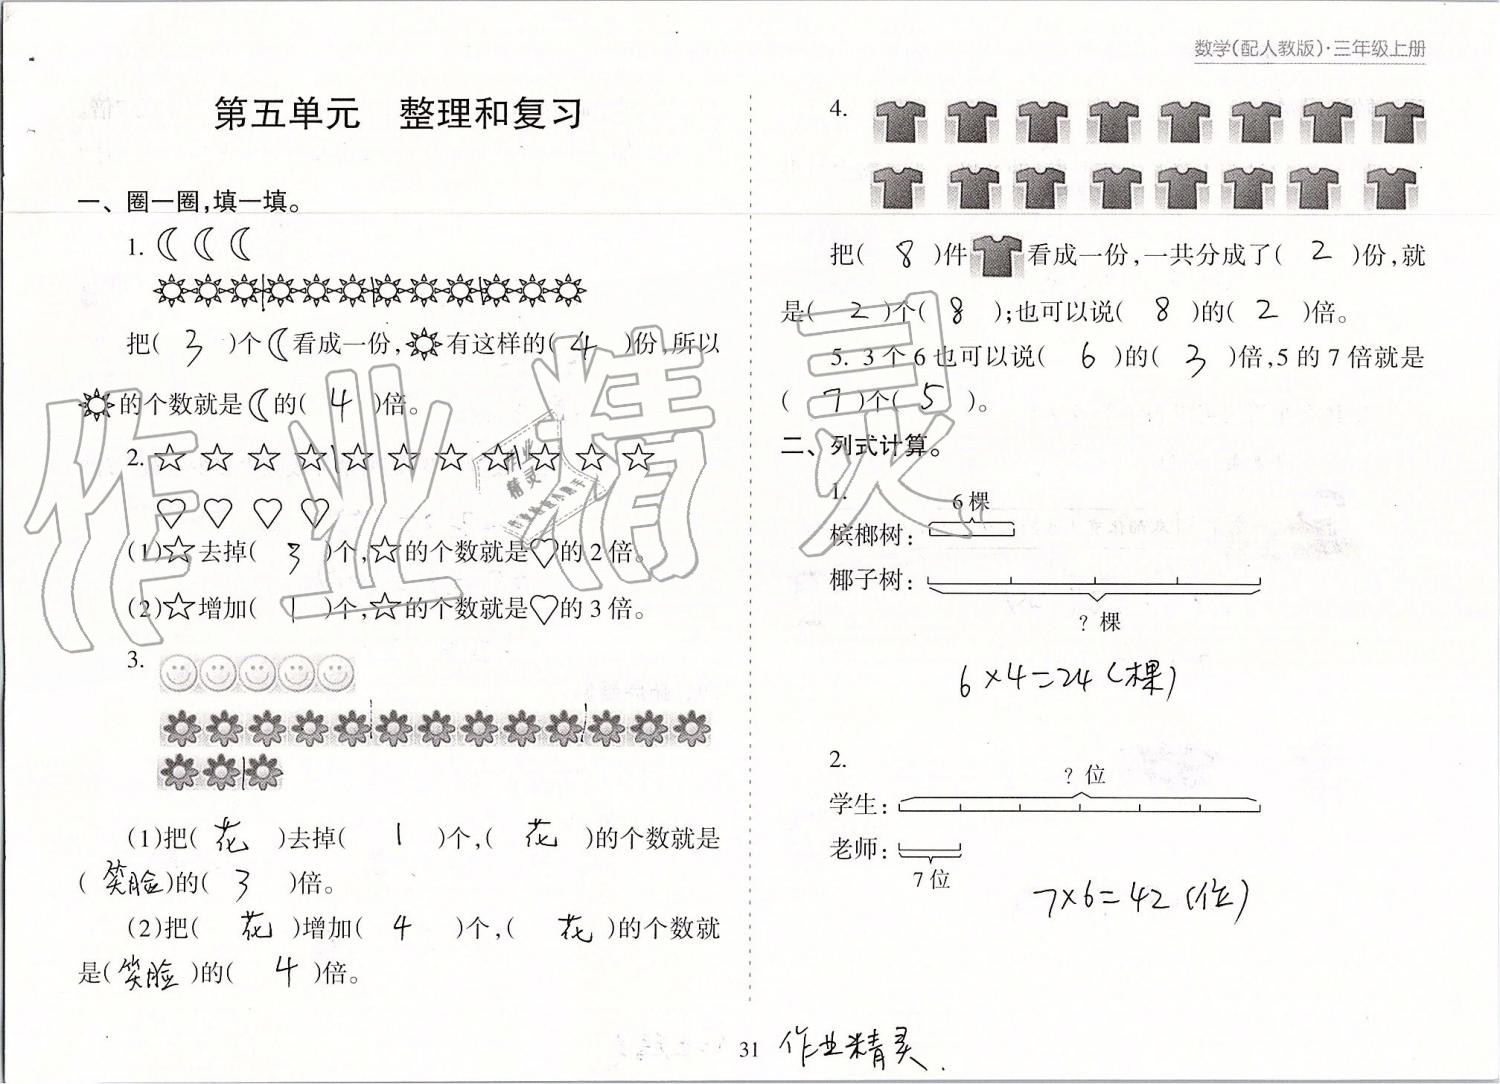 数学(配人教版)·三年级上册
第五单元 整理和复习
一、圈一圈,填一填。
1.
把( 3 )个看成一份,有这样的( 4 )份,所以
的个数就是的( 4 )倍。
2.
(1)☆去掉( 3 )个,☆的个数就是♡的2倍。
(2)☆增加( 1 )个,☆的个数就是♡的3倍。
3.
(1)把( 花 )去掉( 1 )个,( 花 )的个数就是
(笑脸)的( 3 )倍。
(2)把( 花 )增加( 4 )个,( 花 )的个数就
是(笑脸)的( 4 )倍。
4.
把( 8 )件看成一份,一共分成了( 2 )份,就
是( 2 )个( 8 );也可以说( 8 )的( 2 )倍。
5. 3个6也可以说( 6 )的( 3 )倍,5的7倍就是
( 7 )个( 5 )。
二、列式计算。
1.
6棵
槟榔树:
椰子树:
? 棵
6×4=24(棵)
2.
? 位
学生:
老师:
7位
7×6=42(位)
31
作业精灵
作业精灵